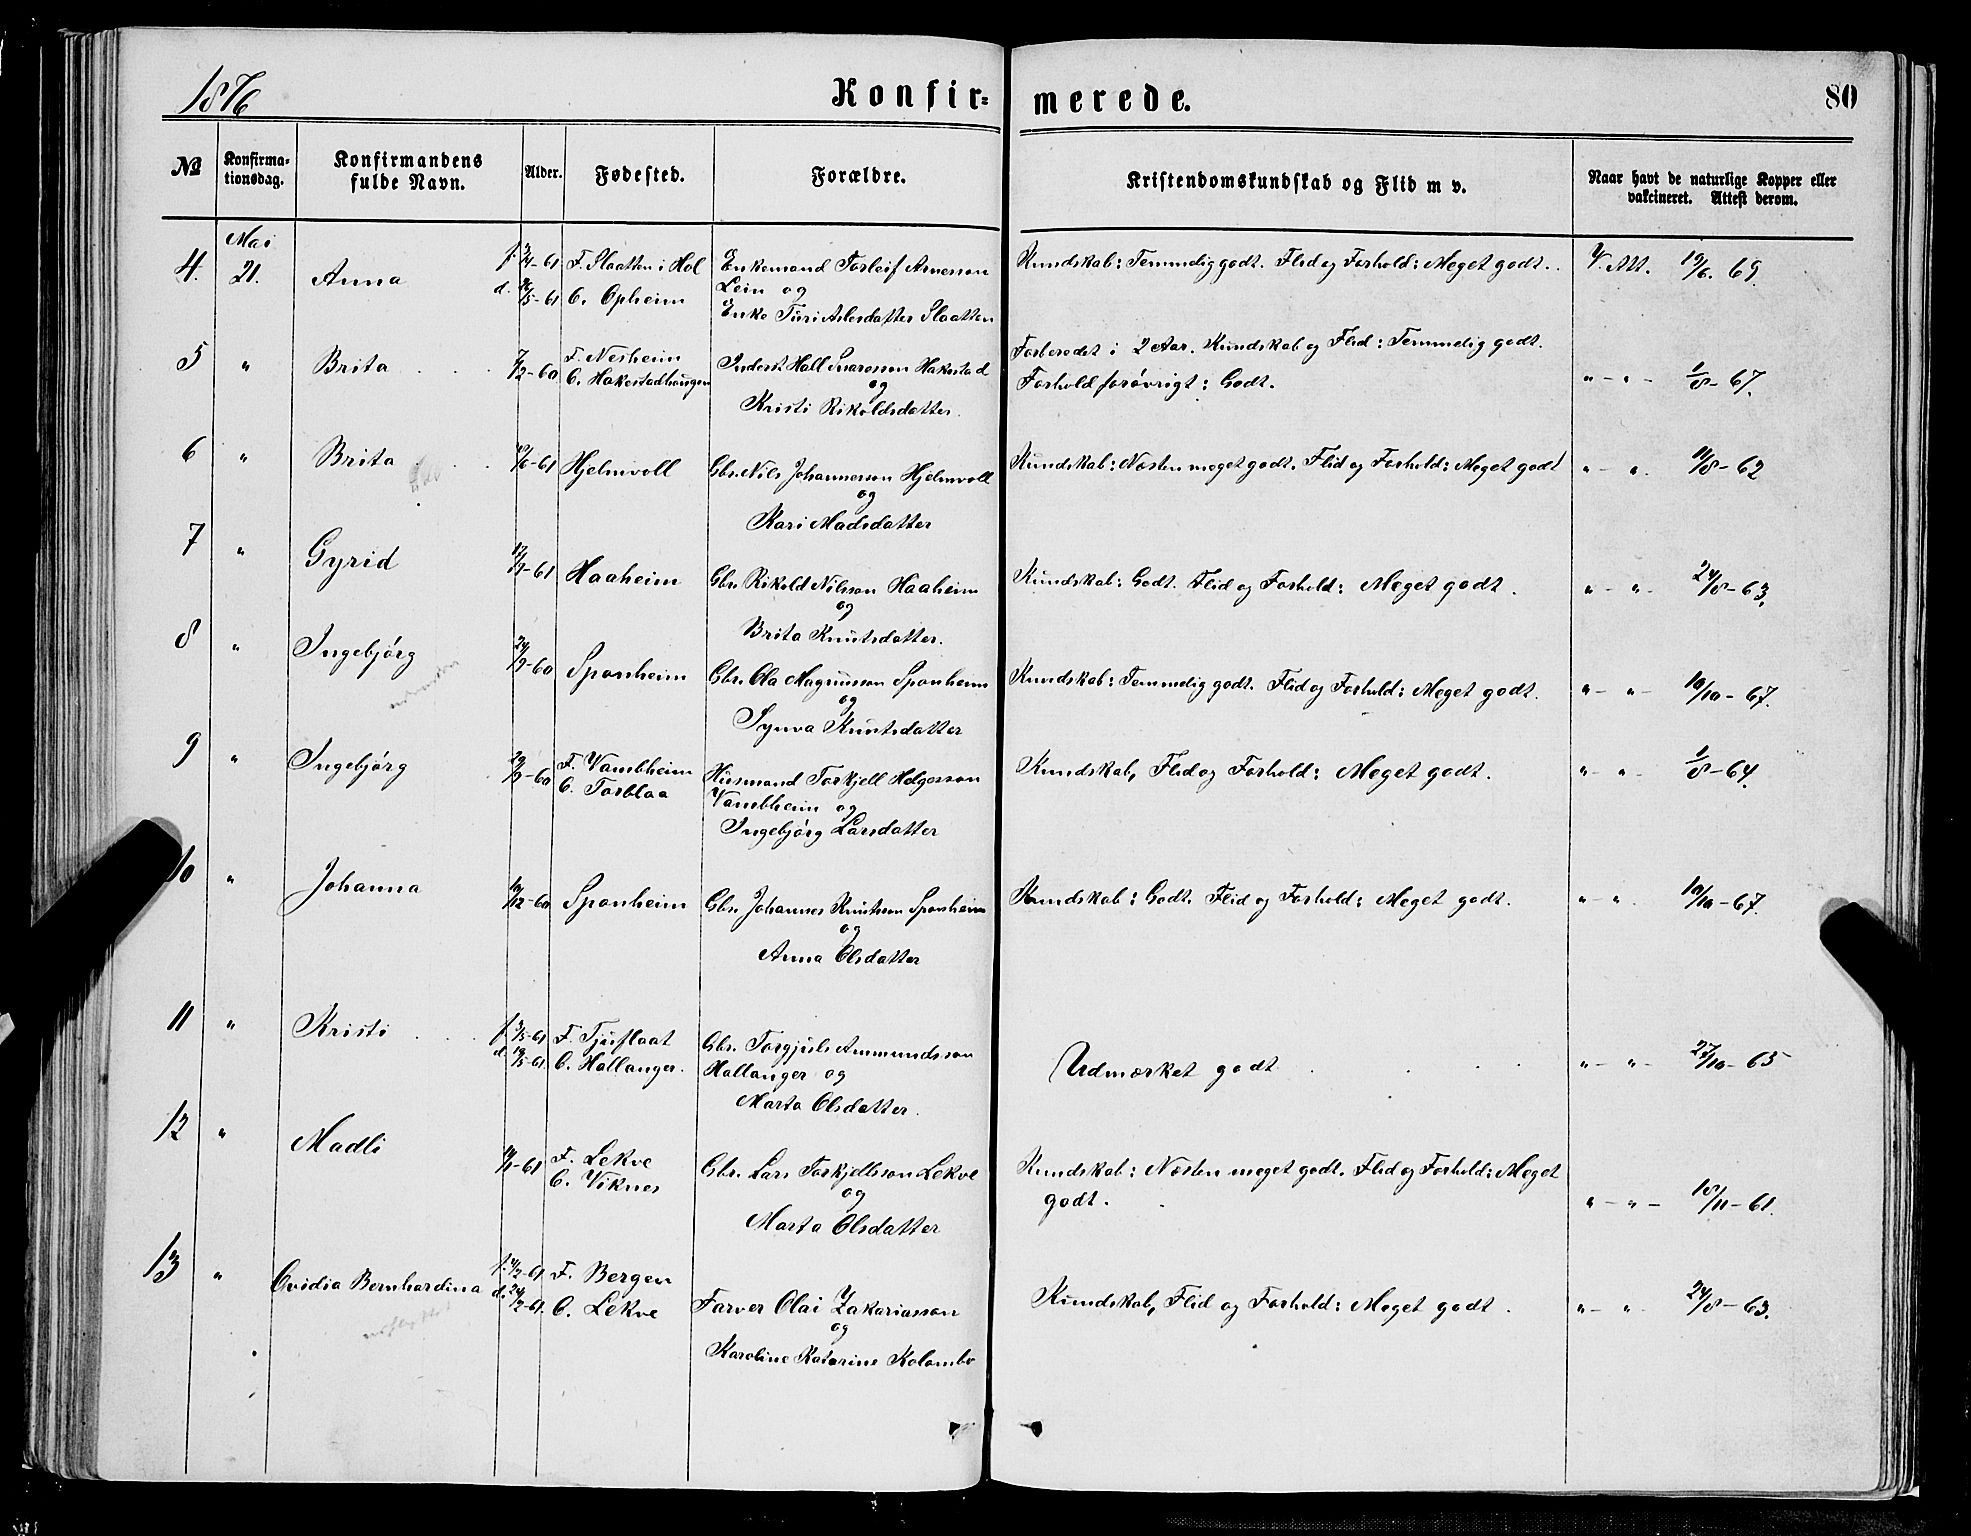 1876
Konfir= merede.
80
No
Konfirma-
tionsdag.
Konfirmandens
fulde Navn.
Alder.
Fødested.
Forældre.
Kristendomskundskab og Flid m v.
Naar havt de naturlige Kopper eller
vakcineret. Attest derom.
Mai
4. 21. Anna f. d. -61 F. Slaatten i Hol Enkemand Torleif Arnesson Kundskab: Temmelig godt. Flid og Forhold: Meget godt. V. Att. 19/6. 69.
-61 O. Opheim Lein og
Enke Turi Aslesdatter Slaatten
5 " Brita 7/2-60 F. Nesheim Inderst Hall Svaresson Hakestad Forberedt i 2 Aar. Kundskab og Flid: Temmelig godt.
O. Hakestadhaugen og Forhold forøvrigt: Godt. " - " - 1/8-67.
Kristi Rikoldsdatter.
6 " Brita /6-61 Hjelmvoll Gbr. Nils Johannesson Hjelmvoll Kundskab: Næsten meget godt. Flid og Forhold: Meget godt " - ". 11/8-62
og
Kari Madsdatter
7 " Gyrid -61 Haaheim Gbr. Rikold Nilsson Haaheim Kundskab: Godt. Flid og Forhold: Meget godt. " - " - 24/8-63.
og
Brita Knutsdatter.
8 " Ingebjørg 24/9-60 Sponheim Gbr. Ola Magnusson Sponheim Kundskab: Temmelig godt. Flid og Forhold: Meget godt. " - " - 10/10-67.
og
Synva Knutsdatter
9 " Ingebjørg 29/9-60 F. Vambheim Husmand Torkjell Helgesson Kundskab, Flid og Forhold: Meget godt. " - " - 1/8-64.
O. Torblaa Vambheim og
Ingebjørg Larsdatter
10 " Johanna /12-60 Sponheim Gbr. Johannes Knutsson Sponheim Kundskab: Godt. Flid og Forhold: Meget godt. " - ". 10/10-67.
og
Anna Olsdatter
11 " Kristi f. 3/5-61 F. Tjuflaat Gbr. Torgjuls Ammundsson
d. 19/5-61 O. Hallanger. Hallanger og Udmærket godt " - " - 27/10-65
Marta Olsdatter.
12 " Madli -61 F. Lekve Gbr. Lars Torkjellsson Lekve Kundskab: Næsten meget godt. Flid og Forhold: Meget
O. Viknes og godt. " - " - 18/11-61.
Marta Olsdatter
13 " Ovidia Bernhardina f. /2-61 F. Bergen
d. 24/2-61. O. Lekve Farver Olai Zakariasson Kundskab, Flid og Forhold: Meget godt. " - " - 24/8-63.
og
Karoline Katarine Kolombo